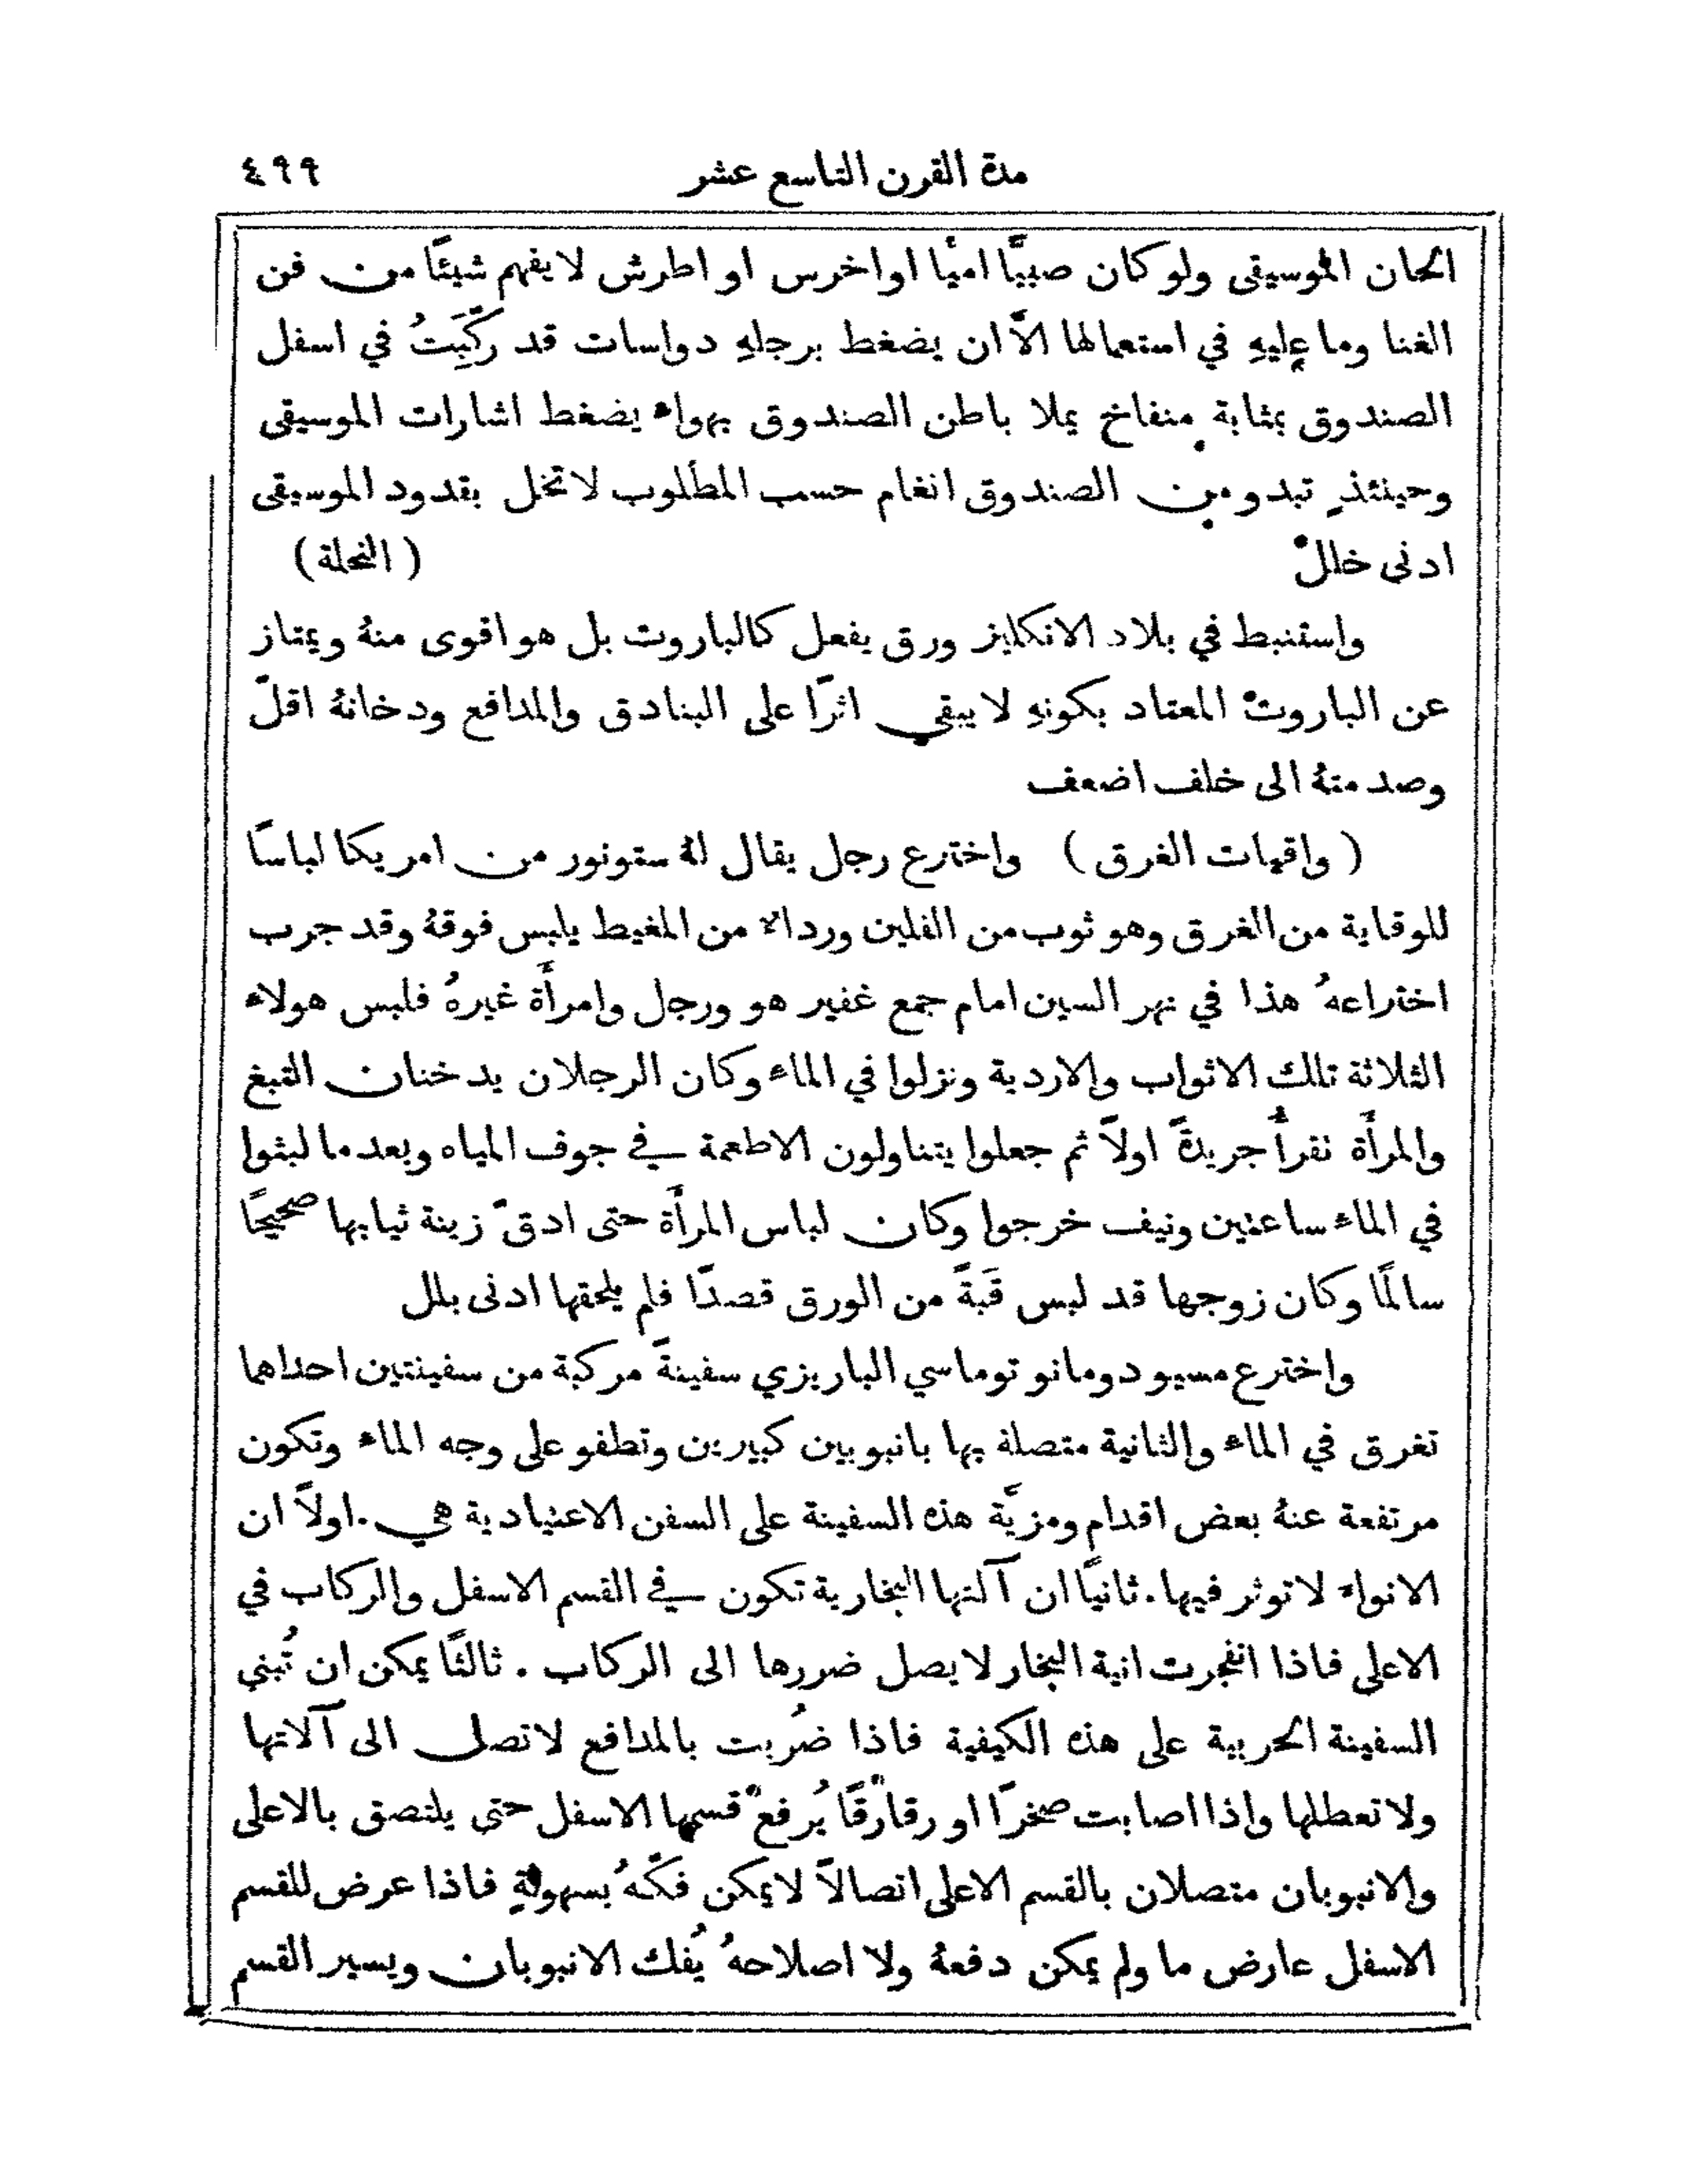 مدة القرن التاسع عشر ٤٩٩
الحان الموسيقى ولو كان صبيًّا اميًا او اخرس او اطرش لا يفهم شيئًا من فن
الغنا وما عليهِ في استعمالها الاَّ ان يضغط برجلهِ دواسات قد رُكِّبَتْ في اسفل
الصندوق بمثابة منفاخ يملا باطن الصندوق بهواء يضغط اشارات الموسيقى
وحينئذٍ تبدو من الصندوق انغام حسب المطلوب لا تخل بقدود الموسيقى
ادنى خلل (النحلة)
واستنبط في بلاد الانكليز ورق يفعل كالباروت بل هو اقوى منهُ ويمتاز
عن الباروت المعتاد بكونهِ لا يبقي اثرًا على البنادق والمدافع ودخانهُ اقلّ
وصدمتهُ الى خلف اضعف
(واقيات الغرق) واخترع رجل يقال لهُ ستونور من امريكا لباسًا
للوقاية من الغرق وهو ثوب من الفلين ورداء من المغيط يلبس فوقهُ وقد جرب
اختراعهُ هذا في نهر السين امام جمع غفير هو ورجل وامرأة غيرهُ فلبس هولاء
الثلاثة تلك الاثواب والاردية ونزلوا في الماء وكان الرجلان يدخنان التبغ
والمرأة تقرأ جريدةً اولاً ثم جعلوا يتناولون الاطعمة في جوف المياه وبعد ما لبثوا
في الماء ساعتين ونيف خرجوا وكان لباس المرأة حتى ادقّ زينة ثيابها صحيحًا
سالمًا وكان زوجها قد لبس قَبةً من الورق قصدًا فلم يلحقها ادنى بلل
واخترع مسيو دومانو توماسي الباريزي سفينةً مركبة من سفينتين احداهما
تغرق في الماء والثانية متصلة بها بانبوبين كبيرين وتطفو على وجه الماء وتكون
مرتفعة عنهُ بعض اقدام ومزيَّة هذه السفينة على السفن الاعتيادية هي. اولاً ان
الانواء لا توثر فيها. ثانيًا ان آلتها البخارية تكون في القسم الاسفل والركاب في
الاعلى فاذا انفجرت انية البخار لا يصل ضررها الى الركاب. ثالثًا يمكن ان تُبنى
السفينة الحربية على هذه الكيفية فاذا ضُربت بالمدافع لا تصل الى آلاتها
ولا تعطلها واذا اصابت صخرًا او رقارقًا يُرفع قسمها الاسفل حتى يلتصق بالاعلى
والانبوبان متصلان بالقسم الاعلى اتصالاً لا يمكن فكّهُ بسهولةٍ فاذا عرض للقسم
الاسفل عارض ما ولم يمكن دفعهُ ولا اصلاحهُ يُفك الانبوبان ويسير القسم